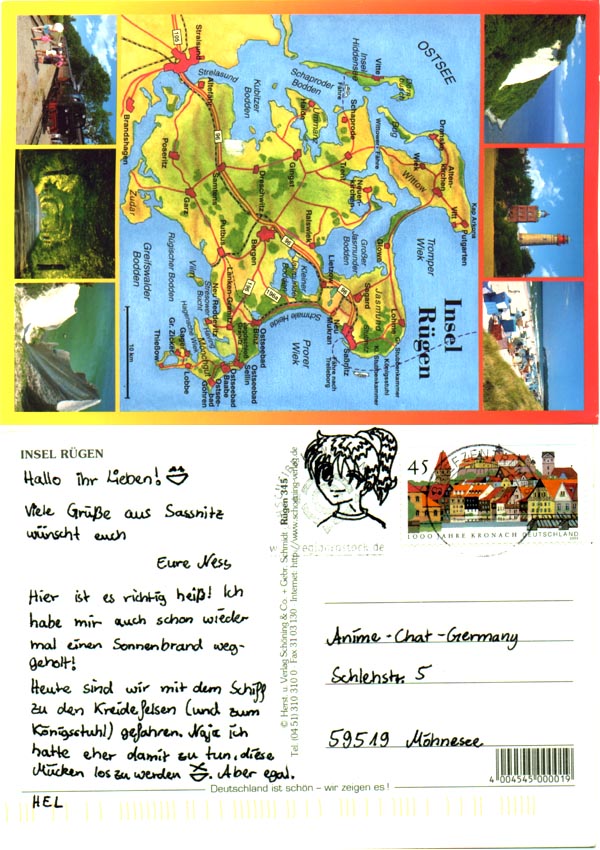 OSTSEE
Insel Hiddensee
Vitte
Stralsund
Strelasund
Kubitzer Bodden
Schaproder Bodden
Ummanz
Schaprode
Wittower Fähre
Dranske
Wiek
Wittow
Alten-kirchen
Vitt
Putgarten
Kap Arkona
Altefähr
Brandshagen
Poseritz
Samtens
Gingst
Trent
Neuen-kirchen
Dreschvitz
Rambin
Garz
Zudar
Bergen
Ralswiek
Großer Jasmunder Bodden
Tromper Wiek
Glowe
Jasmund
Sagard
Lietzow
Kleiner Jasmunder Bodden
Lohme
Stubbenkammer
Königsstuhl
Saßnitz
Neu Mukran
Fähre nach Trelleborg
Insel
Rügen
Schmale Heide
Prorer Wiek
Putbus
Vilm
Lanken-Granitz
Rügischer Bodden
Greifswalder Bodden
Hagensche Wiek
Mönchgut
Gager
Gr. Zicker
Thießow
Lobbe
Ostsee-bad Göhren
Ostseebad Baabe
Ostseebad Sellin
Ostseebad Binz
10 km
96
196
INSEL RÜGEN
Hallo ihr Lieben!
Viele Grüße aus Sassnitz
wünscht euch
Eure Ness
Hier ist es richtig heiß! Ich
habe mir auch schon wieder
mal einen Sonnenbrand weg-
geholt!
Heute sind wir mit dem Schiff
zu den Kreidefelsen (und zum
Königsstuhl) gefahren. Naja ich
hatte eher damit zu tun, diese
Mücken los zu werden. Aber egal.
HEL
© Herst. u. Verlag Schöning & Co. + Gebr. Schmidt Rügen 345
Tel. (04 51) 310 310 0 Fax 31 03 130 · Internet: http://www.schoening-verlag.de
45
1000 JAHRE KRONACH DEUTSCHLAND
Anime-Chat-Germany
Schlehstr. 5
59519 Möhnesee
4 004545 000019
Deutschland ist schön – wir zeigen es!